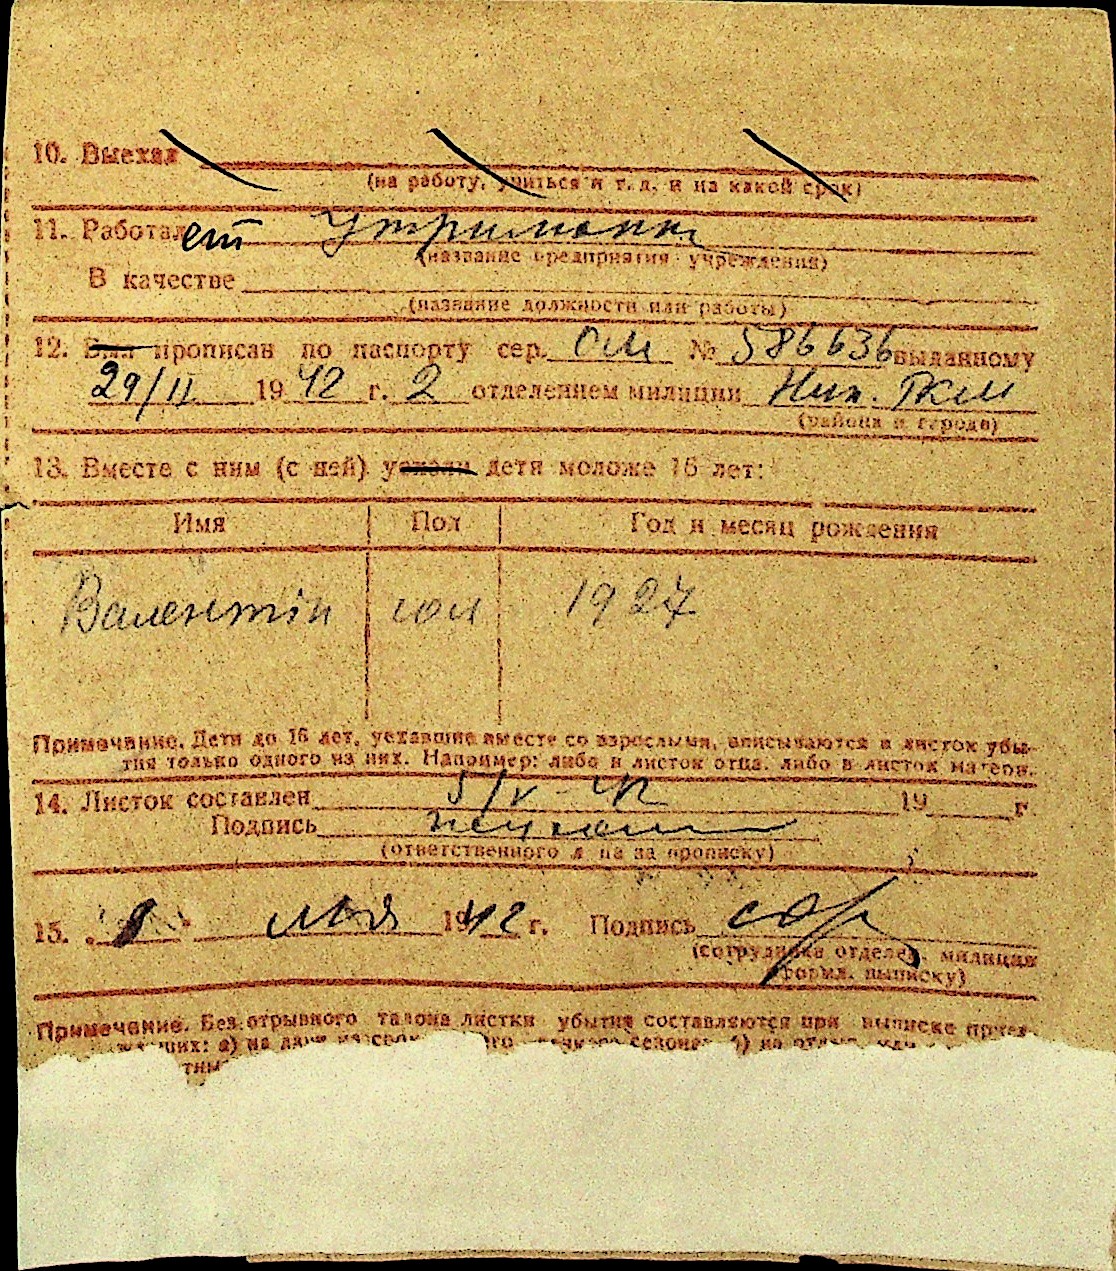 10. Выехал
(на работу, учиться и т. д. и на какой срок)
11. Работает Утриманка
(название предприятия учреждения)
В качестве
(название должности или работы)
12. Был прописан по паспорту сер. ОМ № 586636 выданному
29/II 1942 г. 2 отделением милиции Ник. РКМ
(района и города)
13. Вместе с ним (с ней) уехали дети моложе 16 лет:
Имя Пол Год и месяц рождения
Валентін 1927
Примечание. Дети до 16 лет, уехавшие вместе со взрослыми, вписываются в листок убы-
тия только одного из них. Например: либо в листок отца, либо в листок матери.
14. Листок составлен 5/V-42 19 г
Подпись
(ответственного лица за прописку)
15. „8" мая 1942 г. Подпись
(сотрудника отделен. милиции
формл. выписку)
Примечание. Без отрывного талона листки убытия составляются при выписке приез-